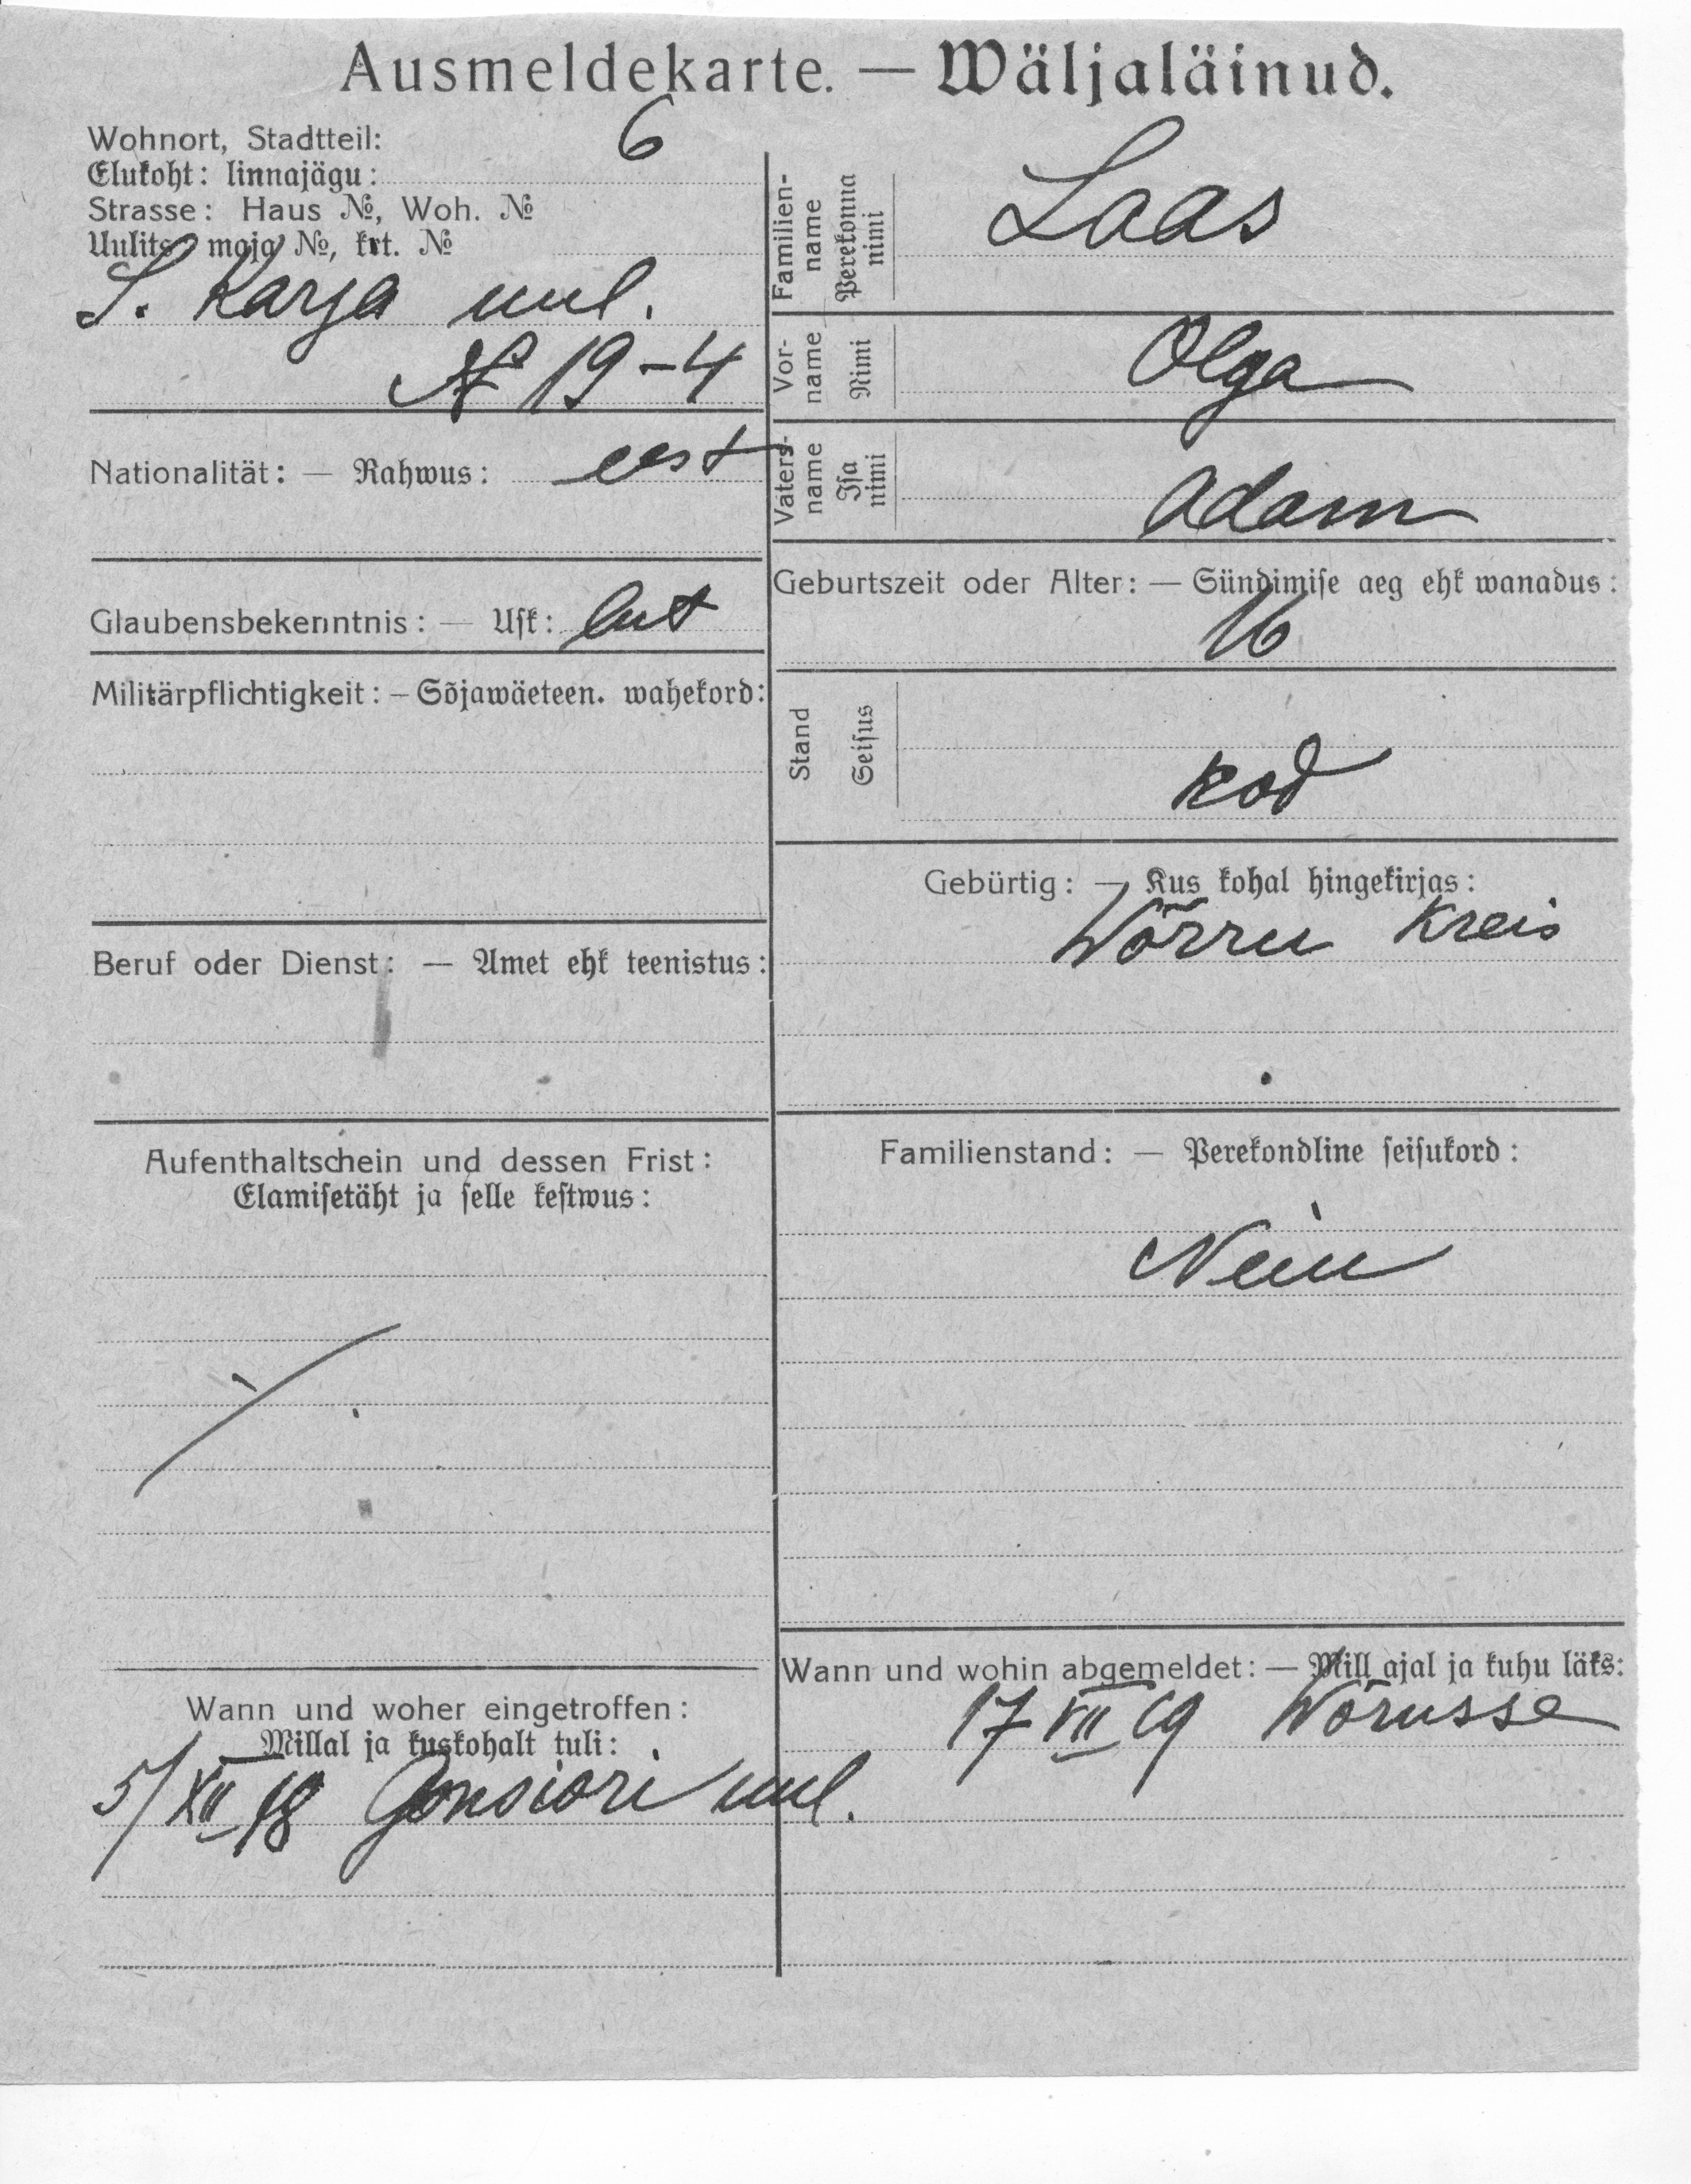 Ausmeldekarte. — Wäljaläinud.
Wohnort, Stadtteil: 6
Elukoht: linnajägu:
Strasse: Haus №, Woh. №
Uulits maja №, krt. №
S. Karja uul.
№ 19-4
Nationalität: — Rahwus: eest
Glaubensbekenntnis: — Usk: lut
Militärpflichtigkeit: – Sõjawäeteen. wahekord:
Beruf oder Dienst: — Amet ehk teenistus:
Aufenthaltschein und dessen Frist:
Elamisetäht ja selle kestwus:
Wann und woher eingetroffen:
Millal ja kuskohalt tuli:
5/XII 18 Gonsiori uul.
Familien-
name
Perekonna
nimi
Laas
Vor-
name
Nimi
Olga
Vaters-
name
Isa
nimi
Adam
Geburtszeit oder Alter: — Sündimise aeg ehk wanadus:
16
Stand
Seisus
kod
Gebürtig: — Kus kohal hingekirjas:
Wõrru Kreis
Familienstand: — Perekondline seisukord:
Neiu
Wann und wohin abgemeldet: — Mill ajal ja kuhu läks:
17 VII 19 Wõrusse